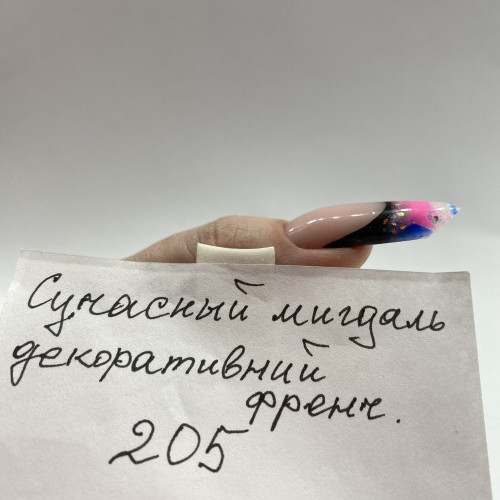 Сучасный мигдаль
декоративний
френч.
205